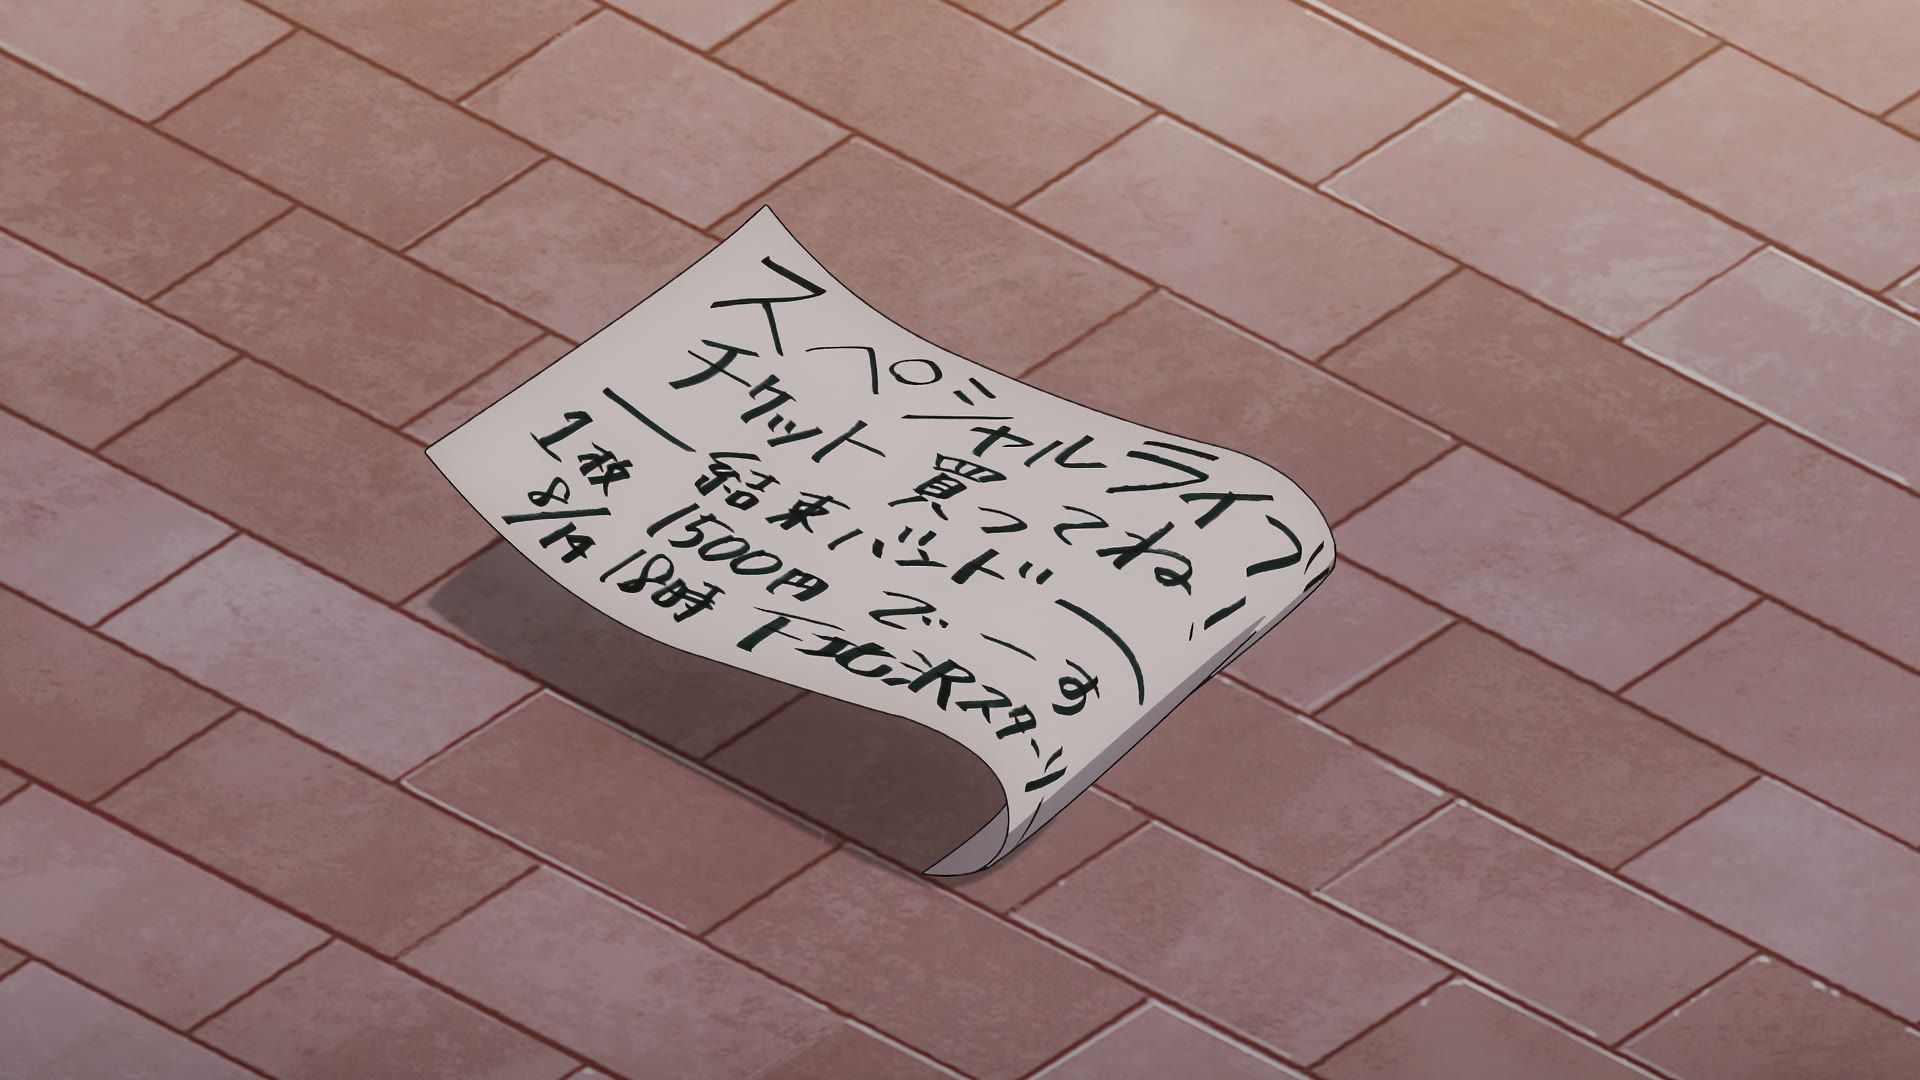 スペシャルライブ
チケット買ってね!
― 結束バンド ―
1枚 1500円でーす
8/14 18時 下北沢スターリ